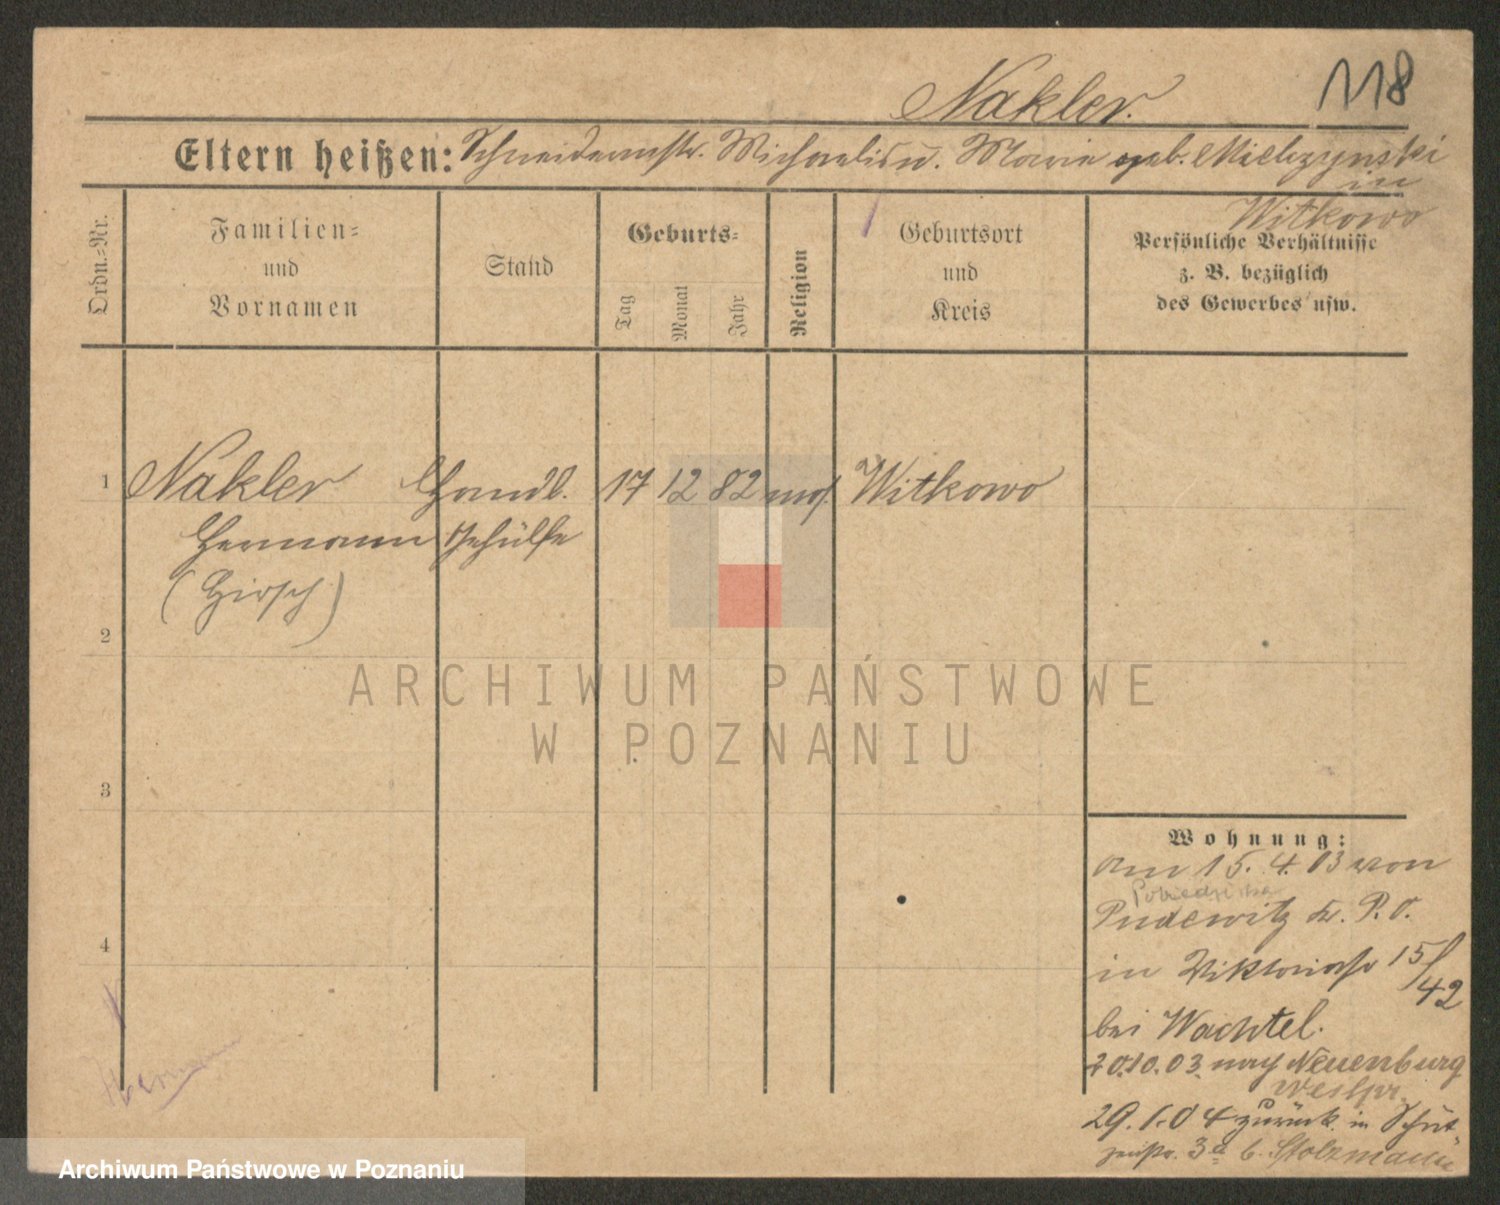 Nakler.
118
Eltern heißen: Schneidermstr. Michaelis u. Marie geb. Mielczynski
in
Witkowo
Ordn.-Nr.
Familien-
und
Vornamen
Stand
Geburts-
Tag
Monat
Jahr
Religion
Geburtsort
und
Kreis
Persönliche Verhältnisse
z. B. bezüglich
des Gewerbes usw.
1 Nakler Handl. 17 12 82 mos. Witkowo
Hermann Gehülfe
(Hirsch)
2
3
4
Wohnung:
am 15. 4. 03 von
Pobiedziska
Pudewitz Kr. P. O.
in Viktoriastr 15/42
bei Wachtel.
20.10.03. nach Neuenburg
Westpr.
29. 1. 04 zurück in Schüt-
zenstr. 3a b. Stolzmann
Hermann
ARCHIWUM PAŃSTWOWE
W POZNANIU
Archiwum Państwowe w Poznaniu